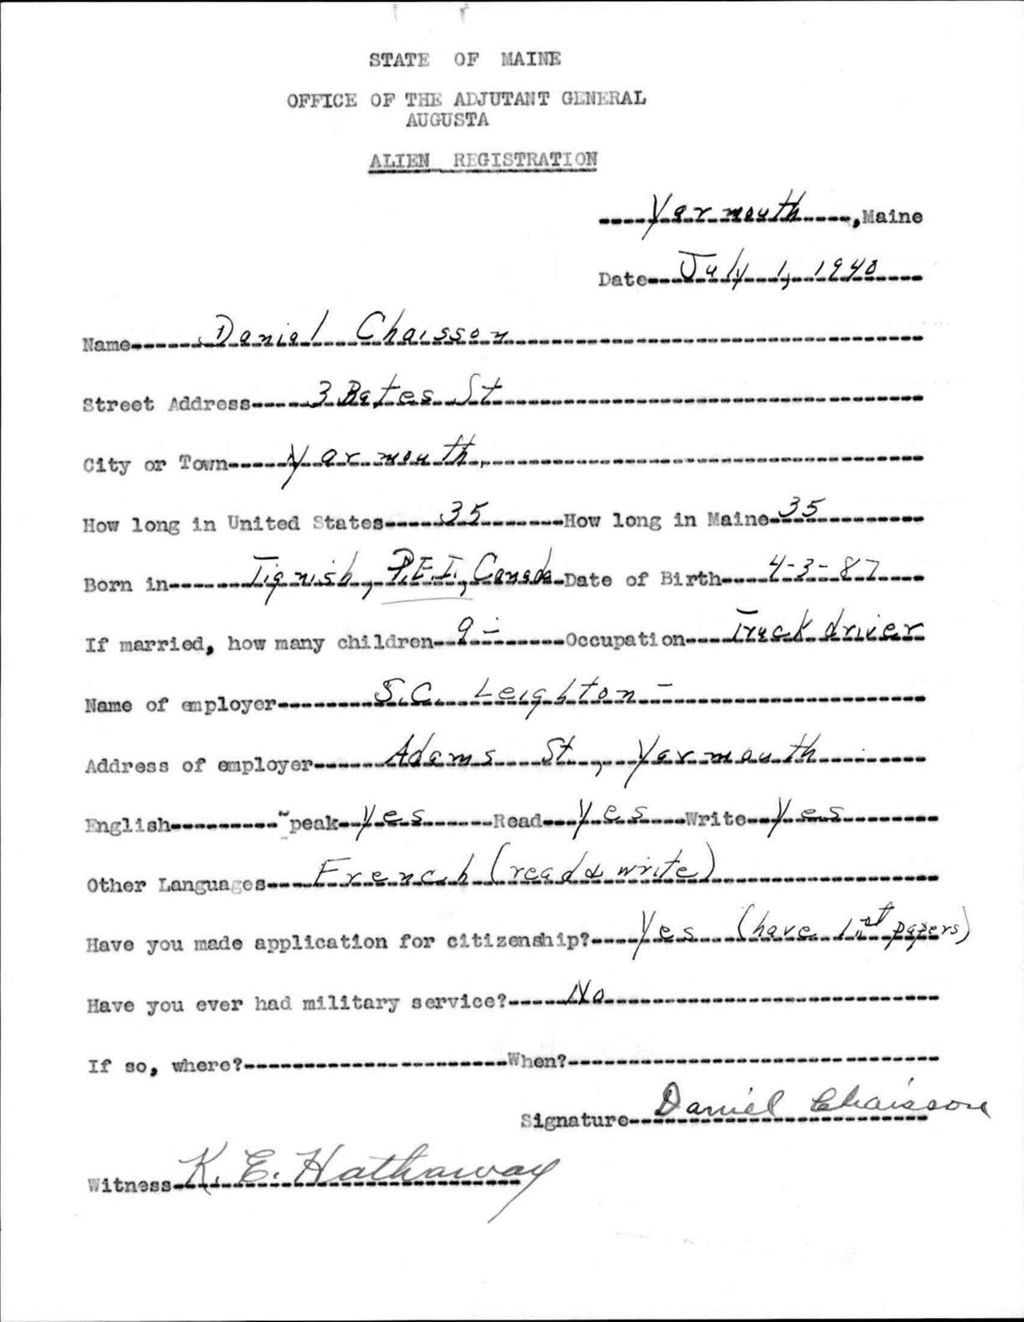 STATE OF MAINE
OFFICE OF THE ADJUTANT GENERAL
AUGUSTA
ALIEN REGISTRATION
Yarmouth, Maine
Date July 1, 1940
Name Daniel Chaisson
Street Address 3 Bates St
City or Town Yarmouth,
How long in United States 35 How long in Maine 35
Born in Tignish, P.E.I., Canada Date of Birth 4-3-87
If married, how many children 9 - Occupation Truck driver
Name of employer S.C. Leighton -
Address of employer Adams St., Yarmouth
English Speak Yes Read Yes Write Yes
Other Languages French (read & write)
Have you made application for citizenship? Yes (have 1st papers)
Have you ever had military service? No
If so, where? When?
Signature Daniel Chaisson
Witness K. E. Hathaway